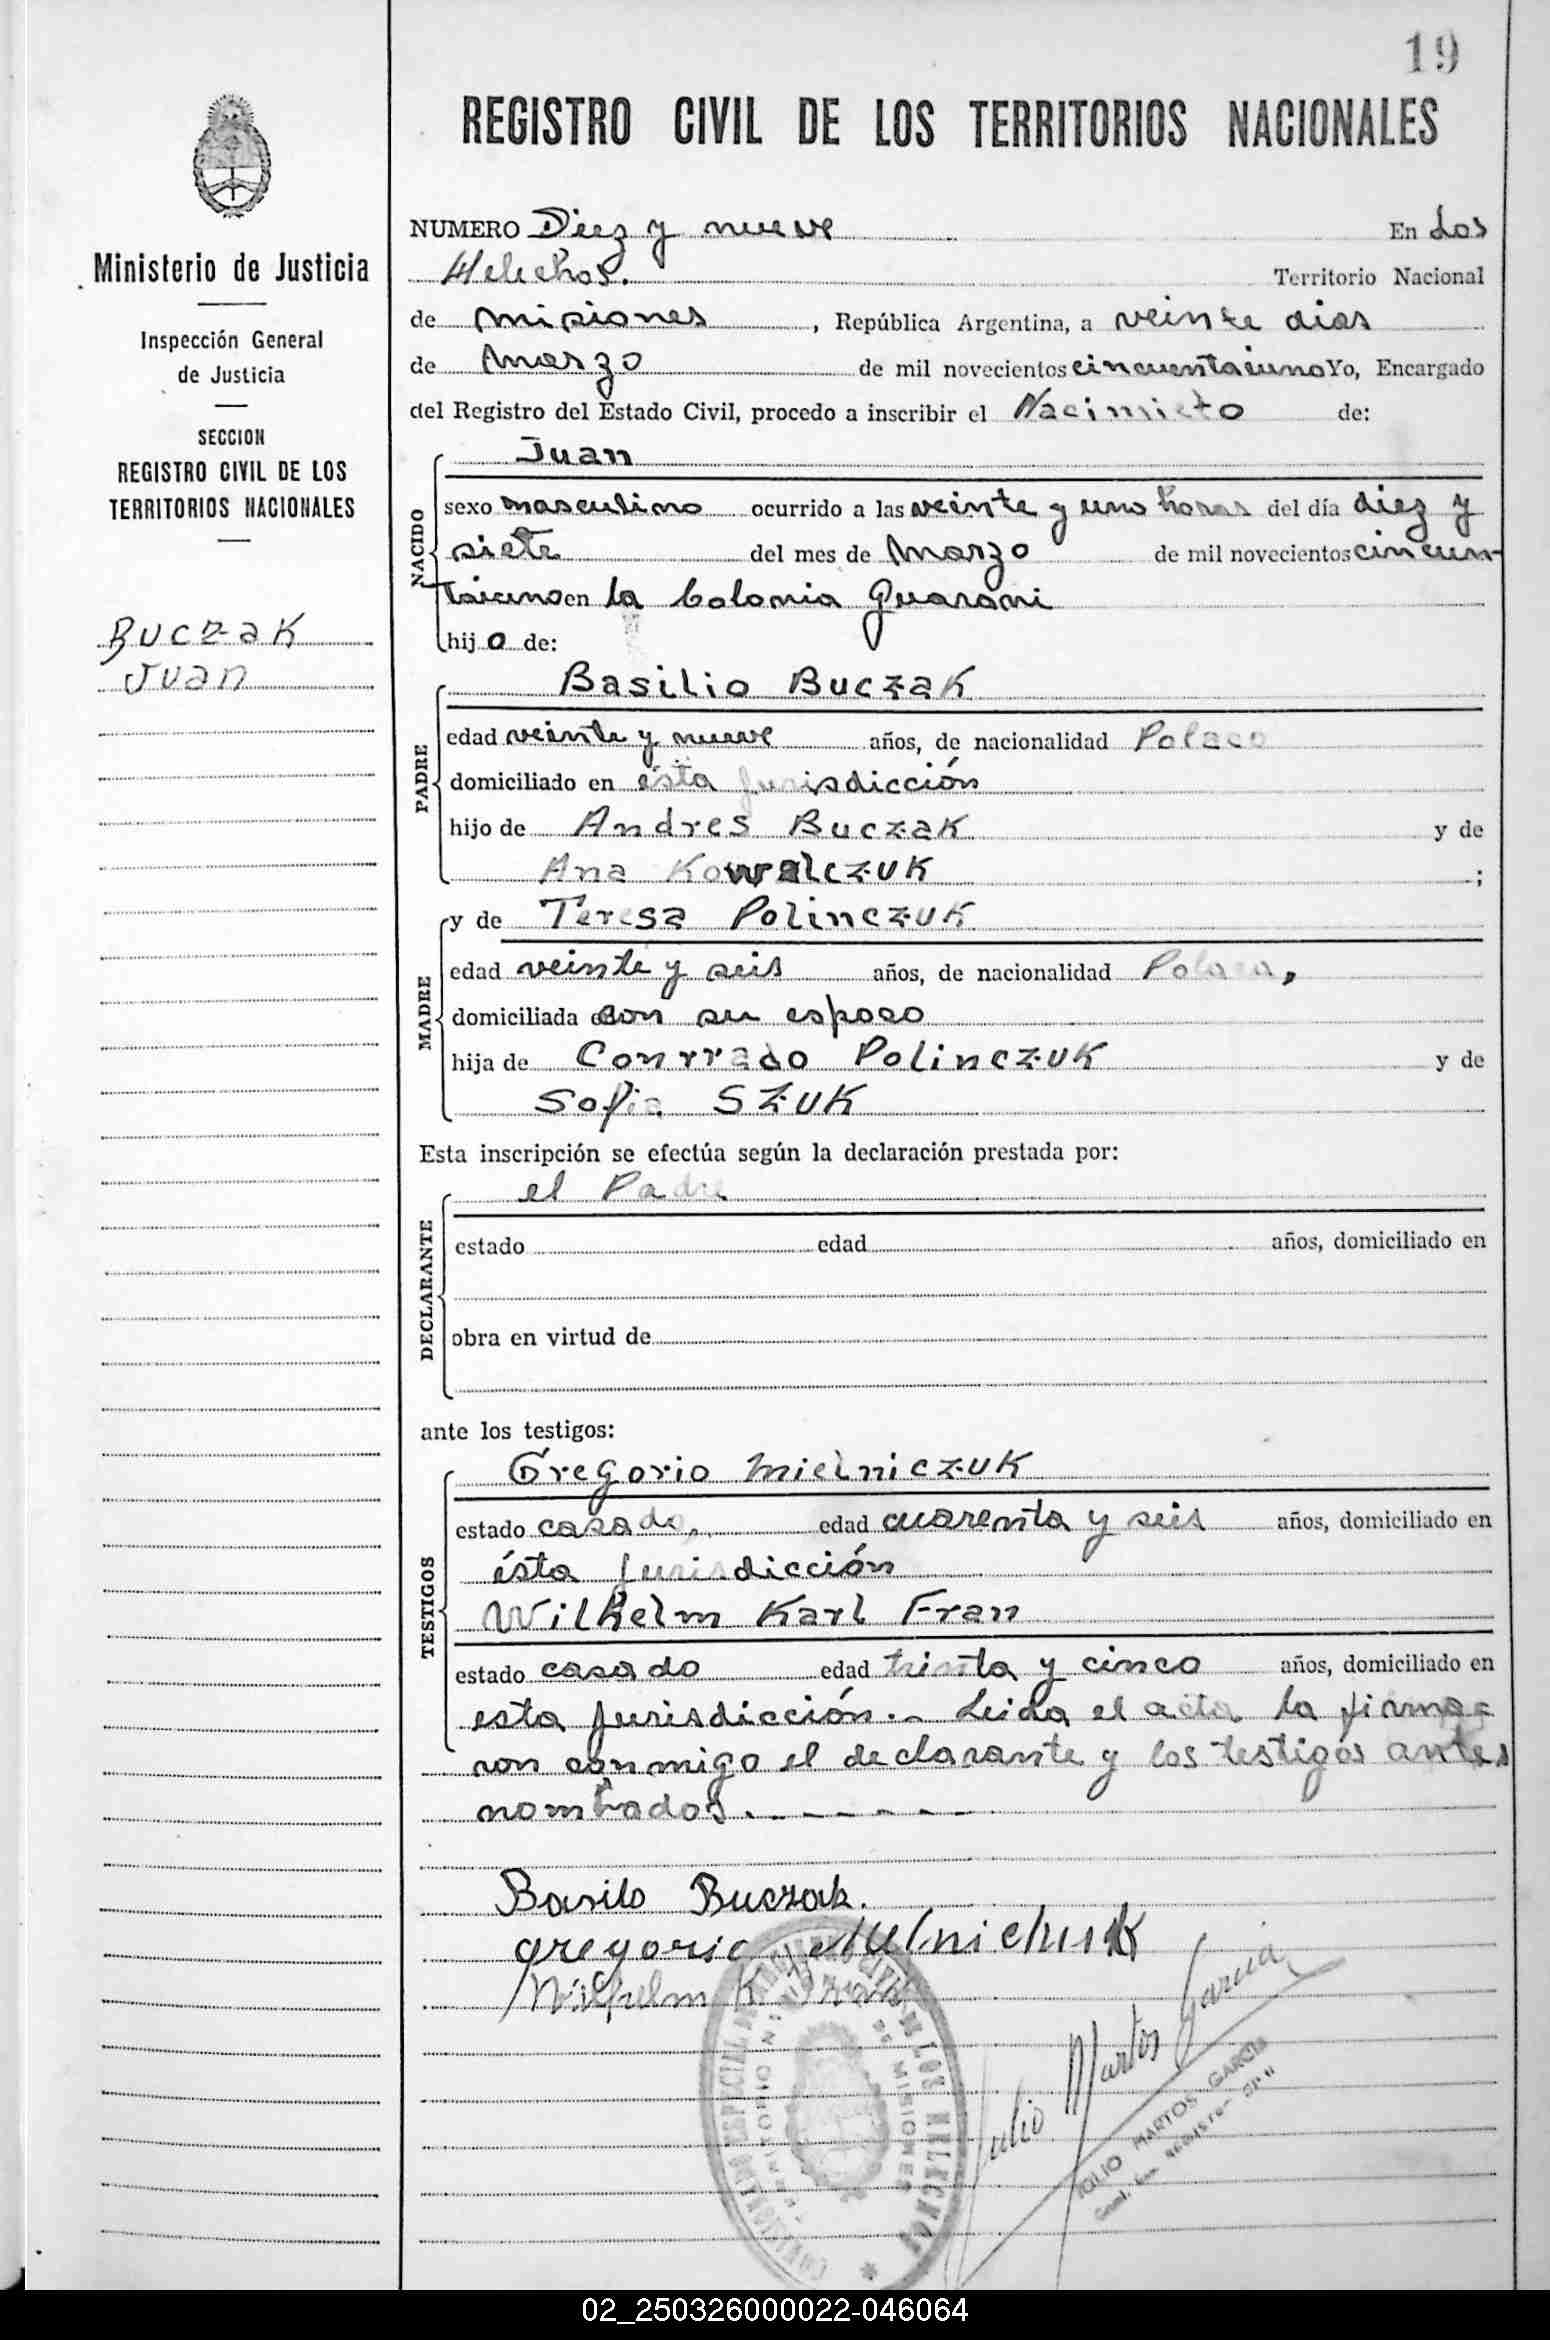 19
REGISTRO CIVIL DE LOS TERRITORIOS NACIONALES
Ministerio de Justicia
Inspección General
de Justicia
SECCION
REGISTRO CIVIL DE LOS
TERRITORIOS NACIONALES
Buczak
Juan
NUMERO Diez y nueve En Los
Helechos. Territorio Nacional
de Misiones, República Argentina, a veinte dias
de Marzo de mil novecientos cincuentaiuno Yo, Encargado
del Registro del Estado Civil, procedo a inscribir el Nacimieto de:
NACIDO
Juan
sexo masculino ocurrido a las veinte y uno horas del día diez y
siete del mes de Marzo de mil novecientos cincuen-
taiuno en la Colonia Guarani
hijo de:
PADRE
Basilio Buczak
edad veinte y nueve años, de nacionalidad Polaco
domiciliado en ésta jurisdicción
hijo de Andres Buczak y de
Ana Kowalczuk ;
MADRE
y de Teresa Polinczuk
edad veinte y seis años, de nacionalidad Polaca,
domiciliada con su esposo
hija de Conrrado Polinczuk y de
Sofia Szuk
Esta inscripción se efectúa según la declaración prestada por:
DECLARANTE
el Padre
estado edad años, domiciliado en
obra en virtud de
ante los testigos:
TESTIGOS
Gregorio Mielniczuk
estado casado, edad cuarenta y seis años, domiciliado en
ésta jurisdicción
Wilhelm Karl Fran
estado casado edad treinta y cinco años, domiciliado en
esta jurisdicción.- Leida el acta la firma-
ron conmigo el declarante y los testigos antes
nombrados.- - - - - -
Basilo Buczak.
gregorio Mielnichuk
Wilhelm K. Fran
Julio Martos Garcia
JULIO MARTOS GARCIA
DE LOS HELECHOS
DE MISIONES
02_250326000022-046064